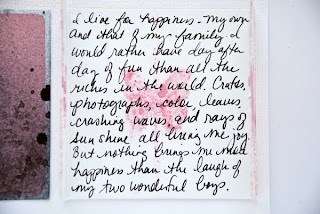 I live for happiness - my own
and that of my family. I
would rather have day after
day of fun than all the
riches in the world. Crafts,
photographs, color, leaves,
crashing waves, and rays of
sun shine all bring me joy.
But nothing brings me more
happiness than the laugh of
my two wonderful boys.